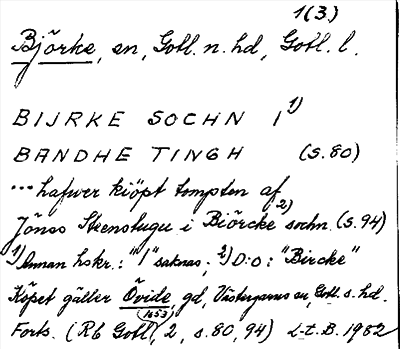 1(3.)
Björke, sn, Gotl. n. hd, Gotl. l.
BIJRKE SOCHN I 1)
BANDHE TINGH (s. 80)
... hafwer kiöpt tompten af
Jönss Steenstugu i Biörcke 2) sochn. (s. 94)
1) Annan hskr.: "I" saknas; 2) D:o: "Bircke"
Köpet gäller Övide, gd, Västergarns sn, Gotl. s. hd.
Forts. (Rb Gotl, 2, s. 80, 94) L-t. B. 1982
1653